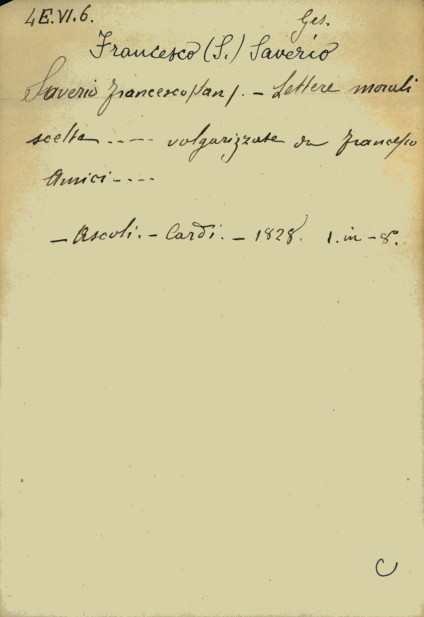 4E.VI.6.
Ges.
Francesco (S.) Saverio
Saverio Francesco (San). - Lettere morali
scelte ..... volgarizzate da Francesco
Amici ....
- Ascoli. - Cardi. - 1828. 1. in - 8°.
C